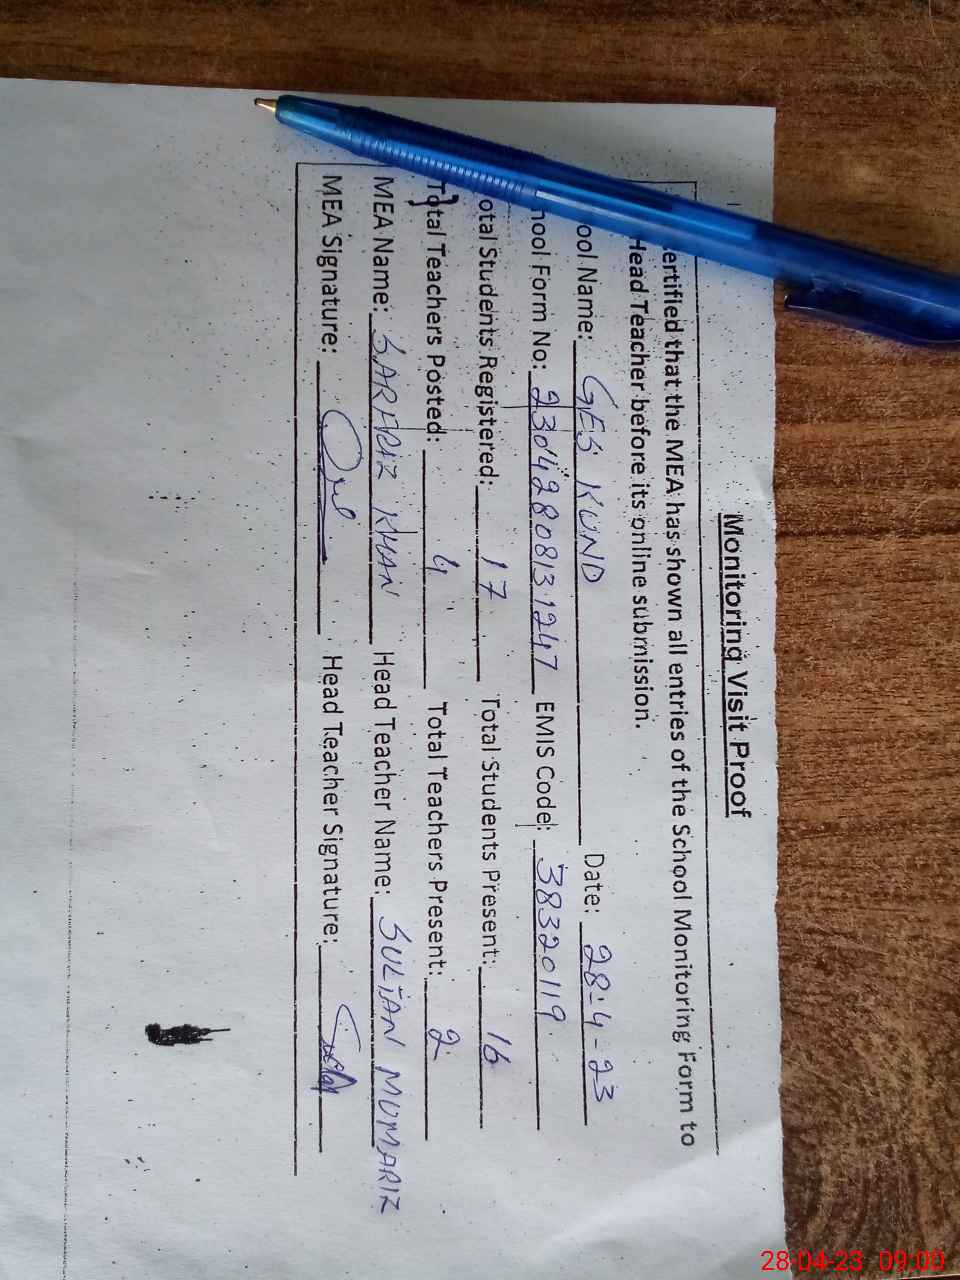 Monitoring Visit Proof
ertified that the MEA has shown all entries of the School Monitoring Form to
Head Teacher before its online submission.
ool Name: GES KUND Date: 28-4-23
hool Form No: 23042808131247 EMIS Code: 38320119
otal Students Registered: 17 Total Students Present: 16
Total Teachers Posted: 4 Total Teachers Present: 2
MEA Name: SARFRIZ KHAN Head Teacher Name: SULTAN MUMARIZ
MEA Signature: Head Teacher Signature:
28-04-23 09:00